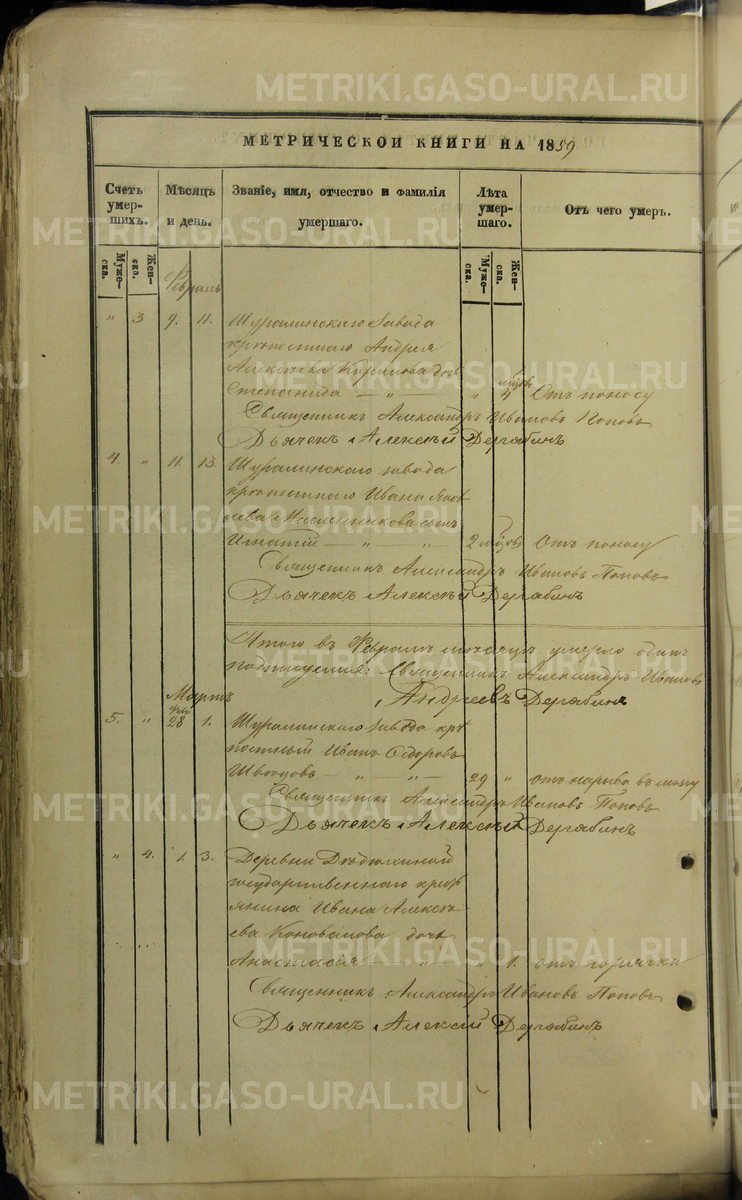 METRIKI.GASO-URAL.RU
МЕТРИЧЕСКОЙ КНИГИ НА 1859
Счетъ умер- шихъ.
Мѣсяцъ и день.
Званіе, имя, отчество и фамилія умершаго.
Лѣта умер- шаго.
Отъ чего умеръ.
Муже- ска.
Жен- ска.
Муже- ска.
Жен- ска.
Февраль
" 3 9. 11. Шуралинскаго завода
крѣпостнаго Андрея
Алексѣева Кирилова дочь
Степанида — " — " 4 Отъ поносу
Священникъ Александръ Ивановъ Поповъ
Дьячекъ Алексѣй Дерябинъ
4. " 11. 13. Шуралинскаго завода
крѣпостнаго Ивана Яков
лева Масленникова сынъ
Игнатій — " — " 2 Отъ поносу
Священникъ Александръ Ивановъ Поповъ
Дьячекъ Алексѣй Дерябинъ
Итого въ Февралѣ мѣсяцѣ умерло
Священникъ Александръ Ивановъ
Андреевъ Дерябинъ
Мартъ
5. " 28 1. Шуралинскаго завода крѣ
постный Иванъ Сидоровъ
Швецовъ — " — " — 29 " отъ нарыва въ
Священникъ Александръ Ивановъ Поповъ
Дьячекъ Алексѣй Дерябинъ
" 4. 1. 3. Деревни
государственнаго крестъ
янина Ивана Алексѣ
ева Коновалова дочь
Анастасія — " " 1. отъ горячки
Священникъ Александръ Ивановъ Поповъ
Дьячекъ Алексѣй Дерябинъ